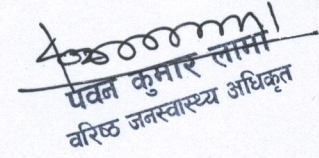 पवन कुमार लामा
वरिष्ठ जनस्वास्थ्य अधिकृत